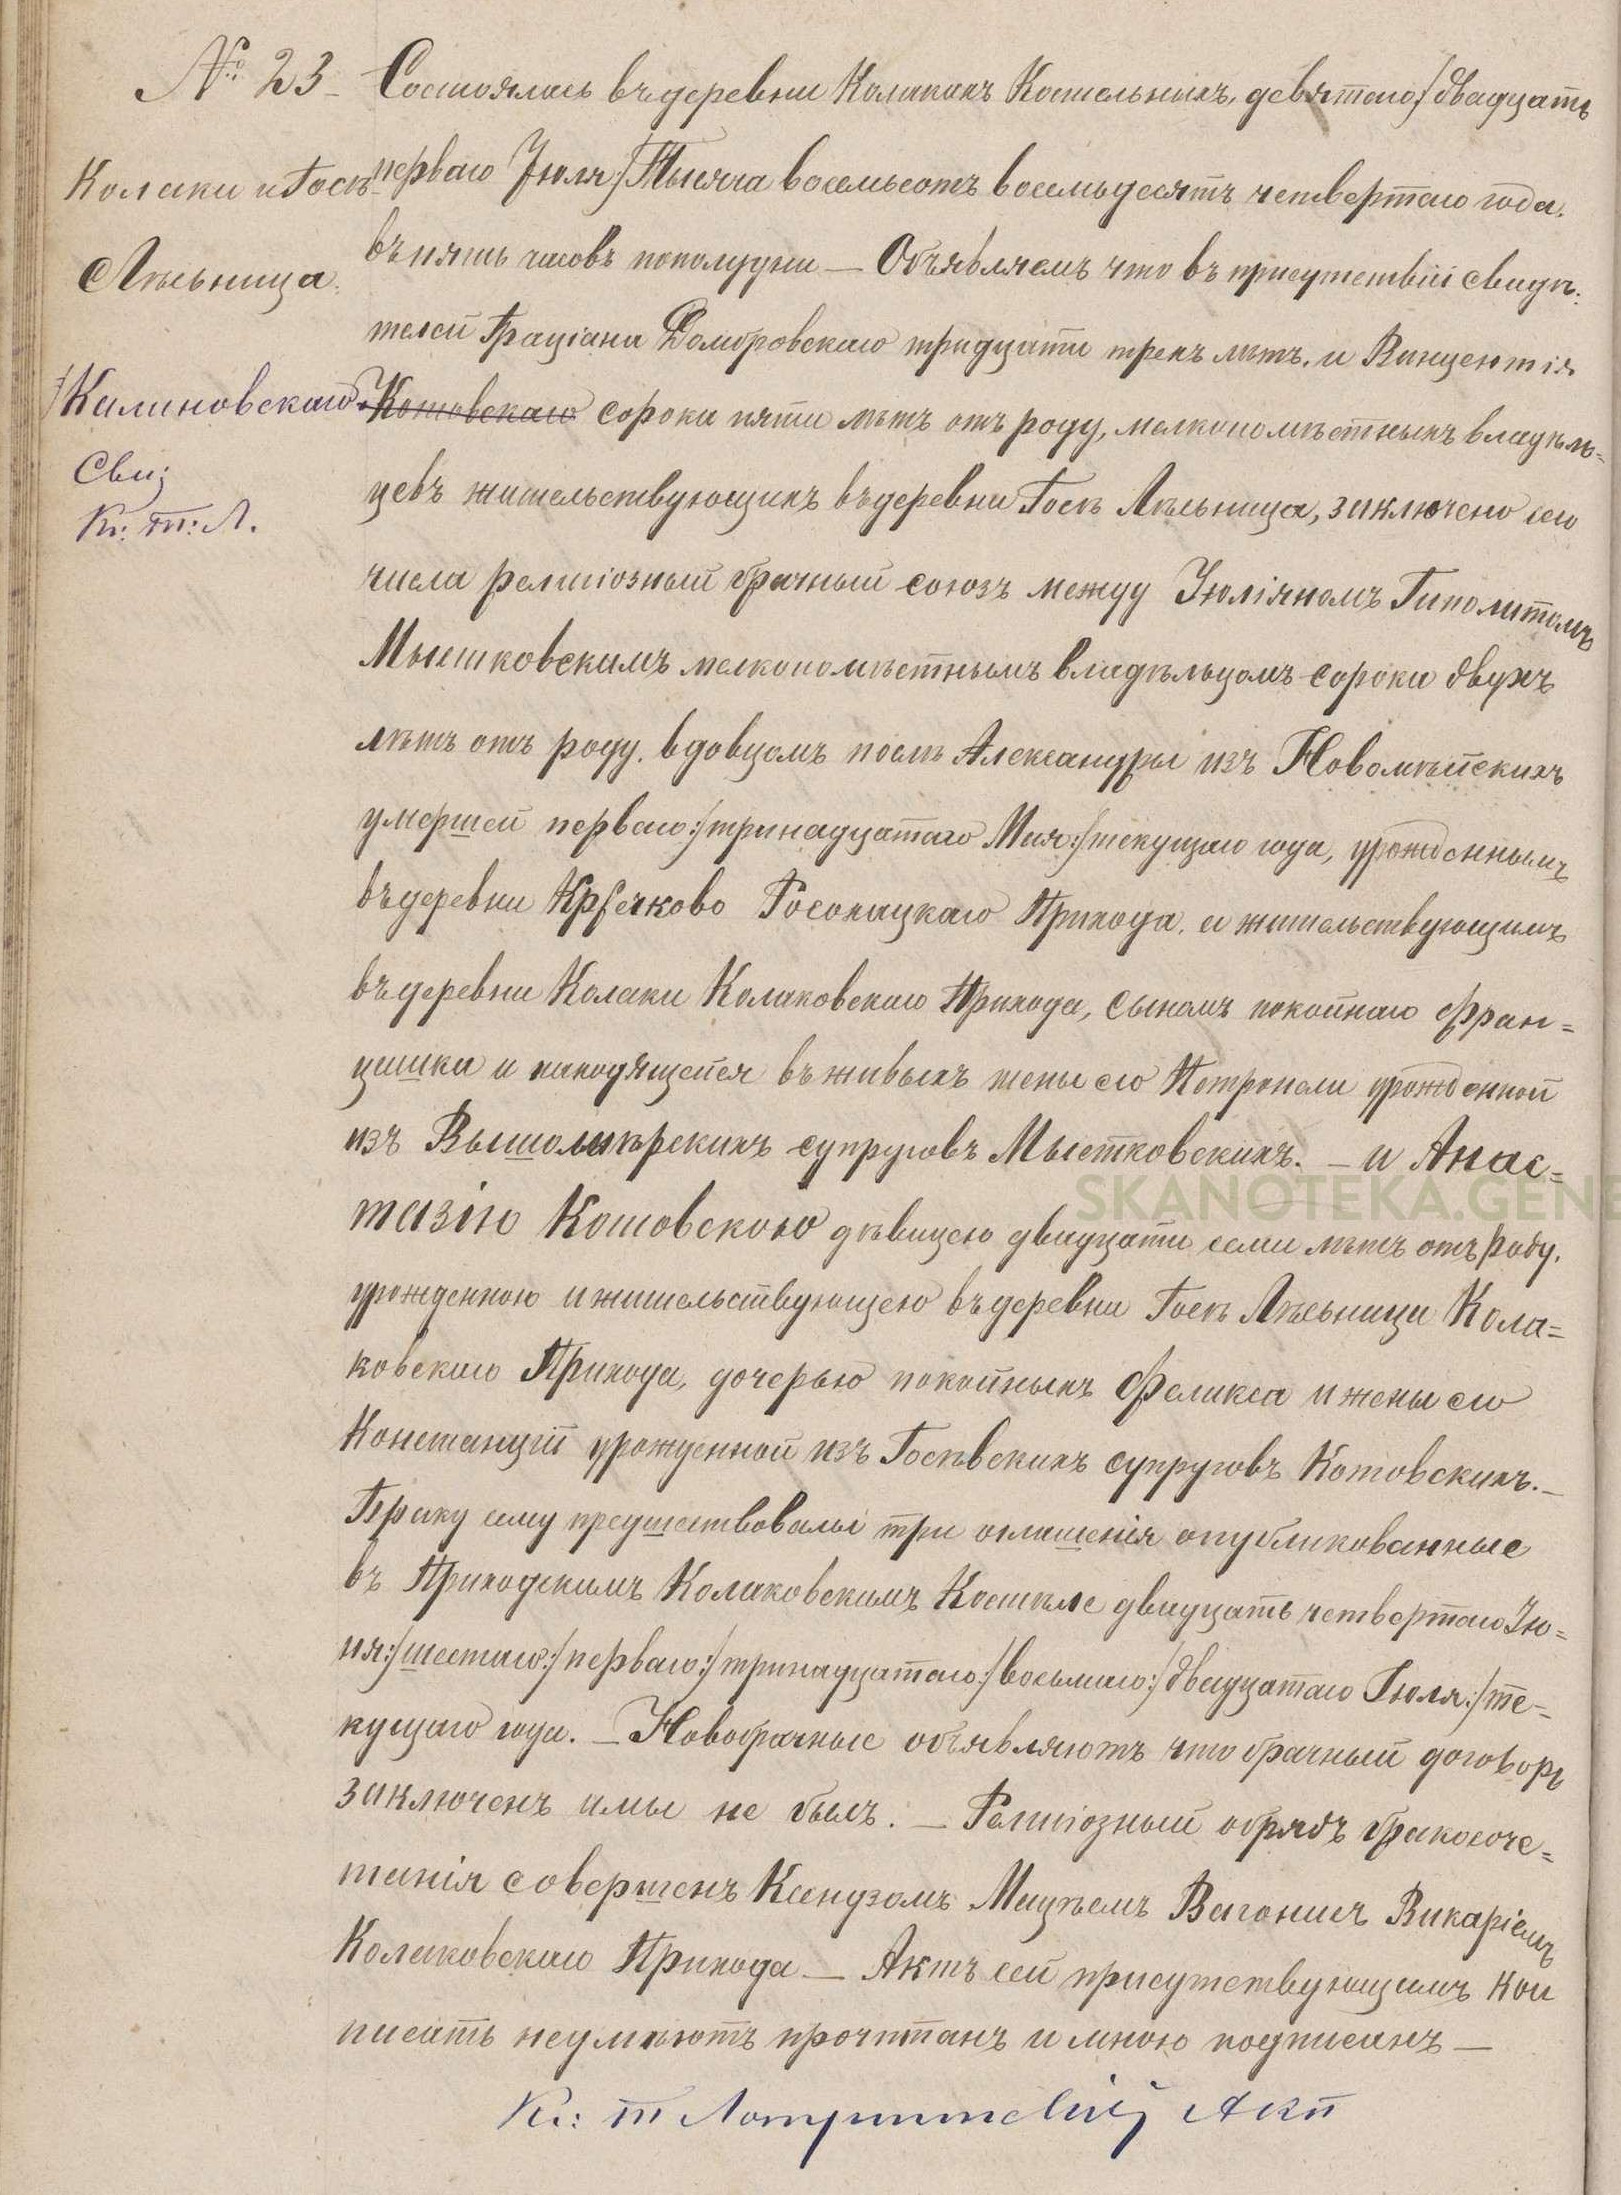 № 23 –
Колаки и Госѣ
Лѣсьница.
Калиновскаго
Свид:
Кс: Т: Л.
Состоялось въ деревни Колакахъ Костельныхъ, девятаго/двадцать
перваго Іюля/Тысяча восемьсотъ восемьдесятъ четвертаго года.
въ пять часовъ пополудни — Объявляемъ что въ присутствіи свидѣ:
телей Граціана Домбровскаго тридцати трехъ лѣтъ, и Винцентія
Котовскаго сорока пяти лѣтъ отъ роду, мелкопомѣстныхъ владѣль=
цевъ жительствующихъ въ деревни Госѣ Лѣсьница, заключено сего
числа религіозный брачный союзъ между Іюліяномъ Гиполитомъ
Мыстковскимъ мелкопомѣстнымъ владѣльцомъ сорока двухъ
лѣтъ отъ роду, вдовцомъ послѣ Александры изъ Новомѣйскихъ
умершей перваго:/тринадцатаго Мая:/текущаго года, урожденнымъ
въ деревни Кречково Росохацкаго Прихода, а жительствующимъ
въ деревни Колаки Колаковскаго Прихода, сыномъ покойнаго Фран=
цишка и находящейся въ живыхъ жены его Петронели урожденной
изъ Вышомѣрскихъ супруговъ Мыстковскихъ. – и Анас=
тазію Котовскою дѣвицею двадцати семи лѣтъ отъ роду,
урожденною и жительствующею въ деревни Госѣ Лѣсьница Кола=
ковскаго Прихода, дочерью покойныхъ Феликса и жены его
Констанціи урожденной изъ Госѣвскихъ супруговъ Котовскихъ. –
Браку сему предшествовалы три оглашенія опубликованные
въ Приходскимъ Колаковскимъ Костѣле двадцать четвертаго Ію=
ня:/шестаго:/перваго:/тринадцатаго:/восьмаго:/двадцатаго Іюля:/те=
кущаго года. – Новобрачные объявляютъ что брачный договоръ
заключенъ имы не былъ. – Религіозный обрядъ бракосоче=
танія совершенъ Ксендзомъ Мацѣемъ Викаріемъ
Колаковскаго Прихода – Актъ сей присутствующимъ кои
писать неумѣютъ прочитанъ и мною подписанъ –
Кс: Т АКП
SKANOTEKA.GENE